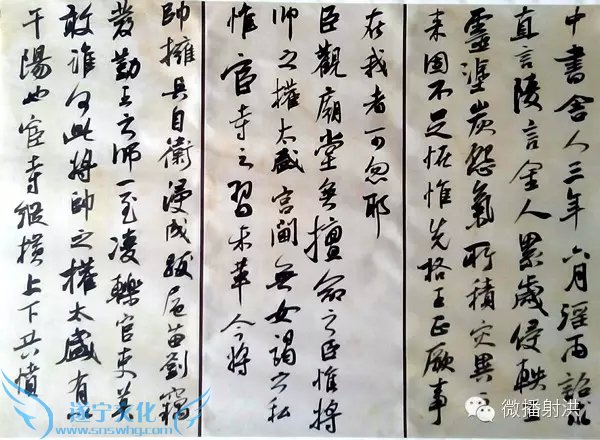 中書舍人三年六月淫雨詔求
直言陵言金人累歲侵軼生
靈塗炭怨氣所積災異之
来固不足怪惟先格王正厥事
在我者可忽耶
臣觀廟堂無擅命之臣惟將
帅之權太盛宮閫無女謁之私
惟宦寺之習未革今將
帥擁兵自衛浸成跋扈苗劉竊
發勤王之師一至凌轢官吏莫
敢誰何此將帥之權太盛有以
干陽也宦寺縱橫上下共憤
遂宁文化
www.snswhg.com
微播射洪